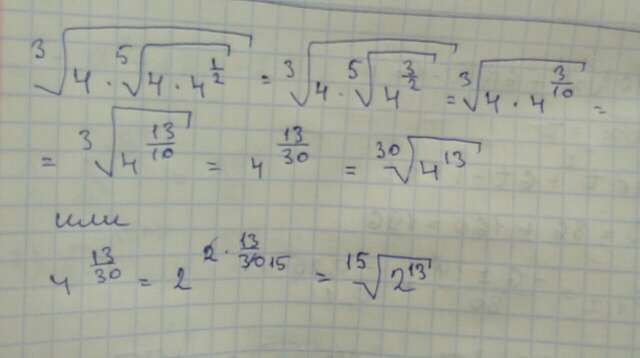 ∛(4 · ⁵√(4 · 4^(1/2))) = ∛(4 · ⁵√(4^(3/2))) = ∛(4 · 4^(3/10)) =
= ∛(4^(13/10)) = 4^(13/30) = ³⁰√(4^13)
или
4^(13/30) = 2^(2 · 13/30 15) = ¹⁵√(2^13)